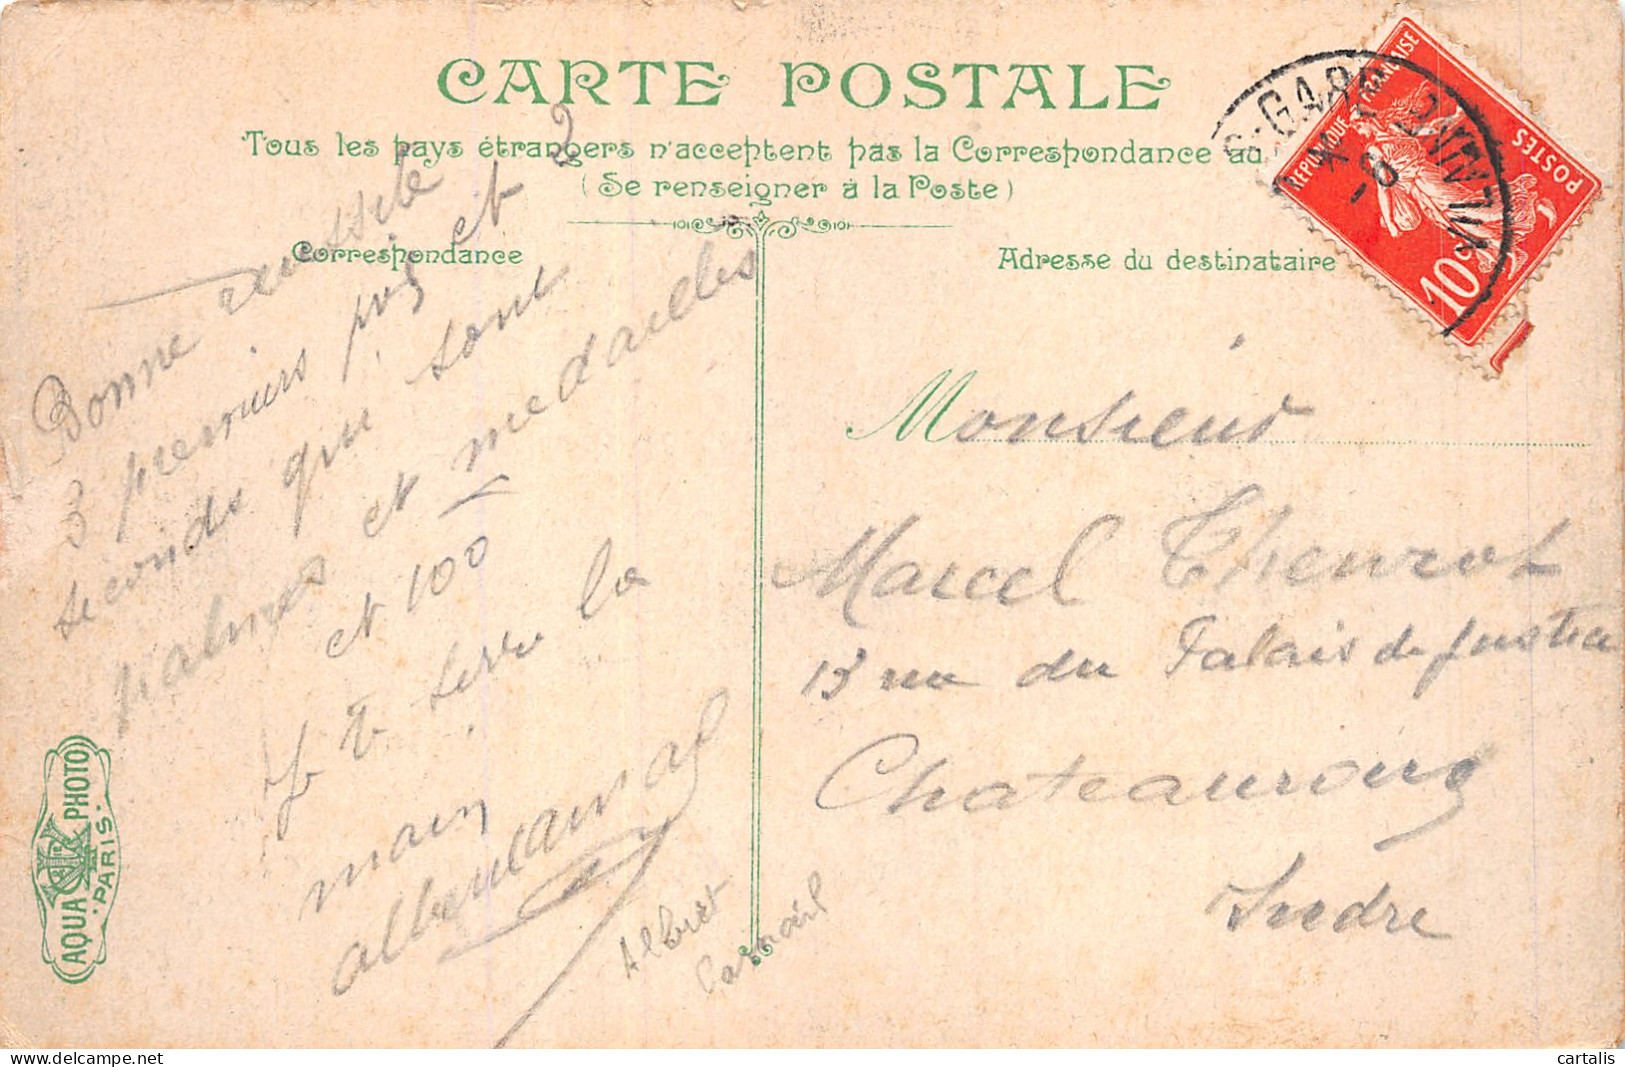 CARTE POSTALE
Tous les pays étrangers n'acceptent pas la Correspondance au
(Se renseigner à la Poste)
Correspondance
Adresse du destinataire
REPUBLIQUE FRANÇAISE
POSTES
10c
GARE
8
Bonne reussite
3 premiers prix et 2
seconds qui sont
palmes et medailles
et 100
Je te serre la
main
Albert
Monsieur
Marcel Thenrot
13 rue du Palais de Justice
Chateauroux
Indre
AQUA PHOTO
PARIS
cartalis